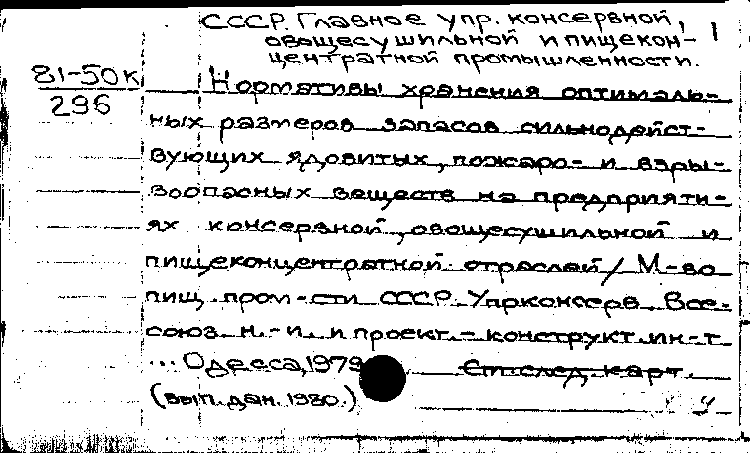 СССР. Главное упр. консервной,
овощесушильной и пищекон-
центратной промышленности.
81-50к
296
Нормативы хранения оптималь-
ных размеров запасов сильнодейст-
вующих ядовитых, пожаро- и взры-
воопасных веществ на предприяти-
ях консервной, овощесушильной и
пищеконцентратной отраслей / М-во
пищ. пром-сти СССР. Упрконсерв. Все-
союз. н.-и. и проект.-конструкт. ин-т
... Одесса, 1979
См. след. карт.
(вып. дан. 1980.)